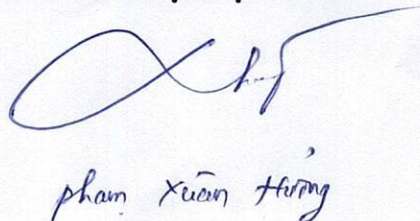 phạm Xuân Hưởng